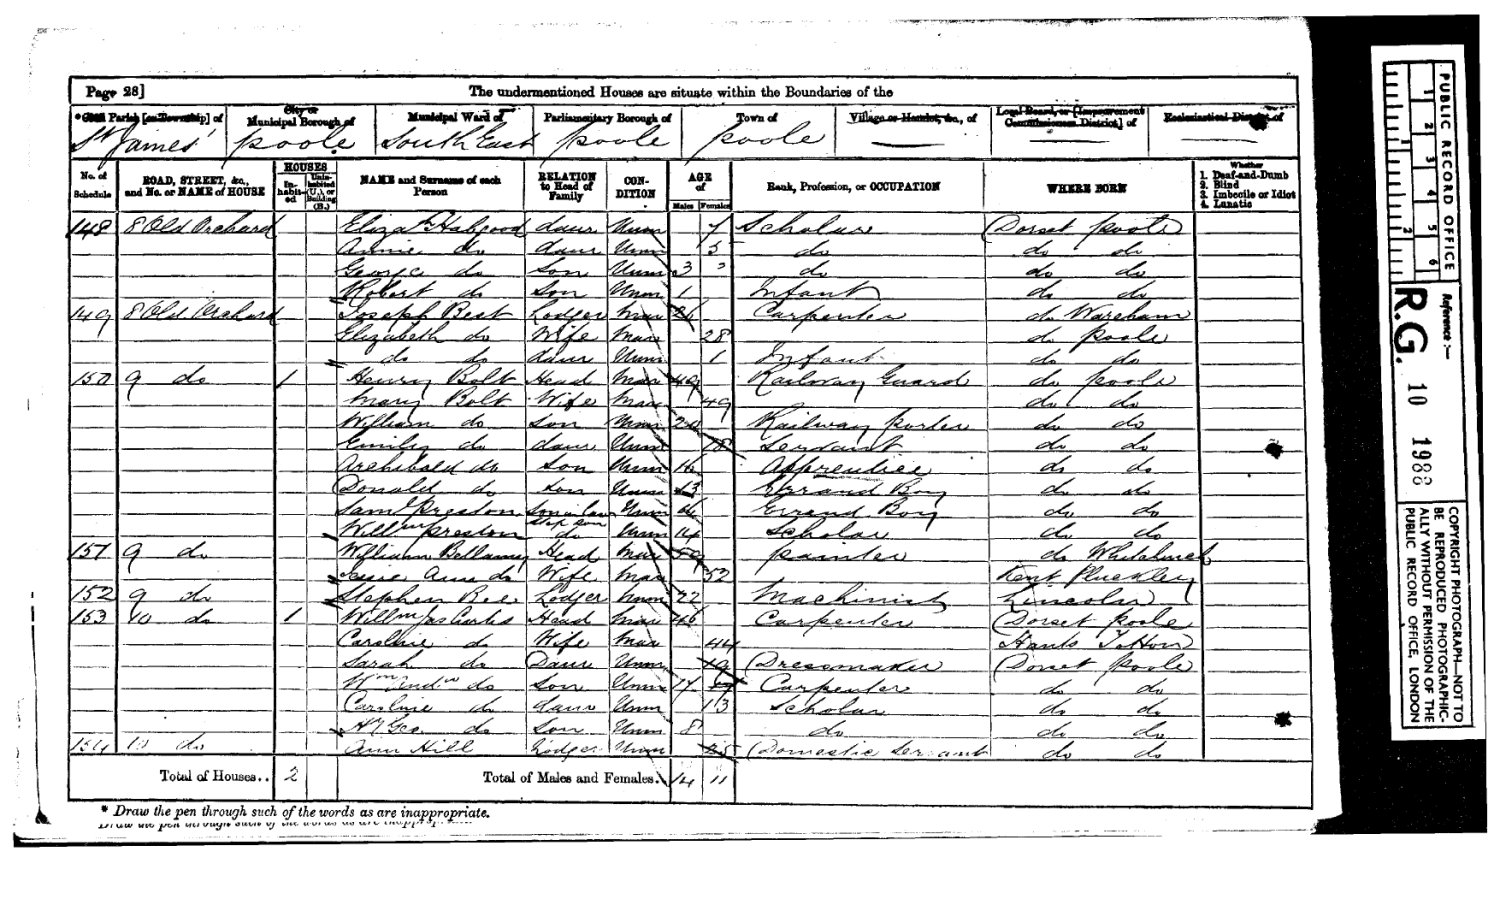 Page 28]
The undermentioned Houses are situate within the Boundaries of the
* Civil Parish [or Township] of City or Municipal Borough of Municipal Ward of Parliamentary Borough of Town of Village or Hamlet, &c., of Local Board, or [Improvement Commissioners District] of Ecclesiastical District of
St James' Poole South East Poole Poole
No. of Schedule ROAD, STREET, &c., and No. or NAME of HOUSE HOUSES Inhabited Uninhabited (U.), or Building (B.) NAME and Surname of each Person RELATION to Head of Family CONDITION AGE of Males Females Rank, Profession, or OCCUPATION WHERE BORN Whether 1. Deaf-and-Dumb 2. Blind 3. Imbecile or Idiot 4. Lunatic
148 8 Old Orchard Eliza Habgood daur Unm 7 Scholar Dorset Poole
Annie do daur Unm 5 do do do
George do Son Unm 3 do do do
Robert do Son Unm 1 Infant do do
149 8 Old Orchard Joseph Best Lodger Mar Carpenter do Wareham
Elizabeth do Wife Mar 28 do Poole
do do daur Unm 1 Infant do do
150 9 do 1 Henry Bolt Head Mar 49 Railway Guard do Poole
Mary Bolt Wife Mar 49 do do
William do Son Unm 20 Railway Porter do do
Emily do daur Unm 18 Servant do do
Archibald do Son Unm 16 Apprentice do do
Donald do Son Unm 13 Errand Boy do do
Saml Preston Son in law Unm 16 Errand Boy do do
Step Son
Willm Preston do Unm 14 Scholar do do
151 9 do William Bellamy Head Mar 59 Painter do Whitchurch
Ann do Wife Mar 52 Kent Pluckley
152 9 do Stephen Bee Lodger Unm 22 Machinist Lincoln
153 10 do 1 Willm Jas Curtis Head Mar 46 Carpenter Dorset Poole
Caroline do Wife Mar 44 Hants Totton
Sarah do Daur Unm 19 Dressmaker Dorset Poole
Wm do Son Unm 17 Carpenter do do
Caroline do daur Unm 13 Scholar do do
Hy Geo do Son Unm 8 do do do
154 10 do Ann Hill Lodger Unm 25 Domestic Servant do do
Total of Houses.. 2 Total of Males and Females.. 14 11
* Draw the pen through such of the words as are inappropriate.
PUBLIC RECORD OFFICE
1 2 3 4 5 6
1 2
Reference :—
R.G. 10 1988
COPYRIGHT PHOTOGRAPH—NOT TO BE REPRODUCED PHOTOGRAPHICALLY WITHOUT PERMISSION OF THE PUBLIC RECORD OFFICE, LONDON